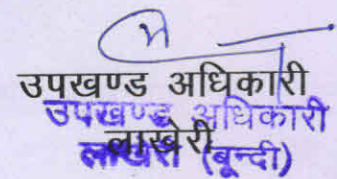 उपखण्ड अधिकारी
उपखण्ड अधिकारी
लाखेरी
लाखेरी (बून्दी)